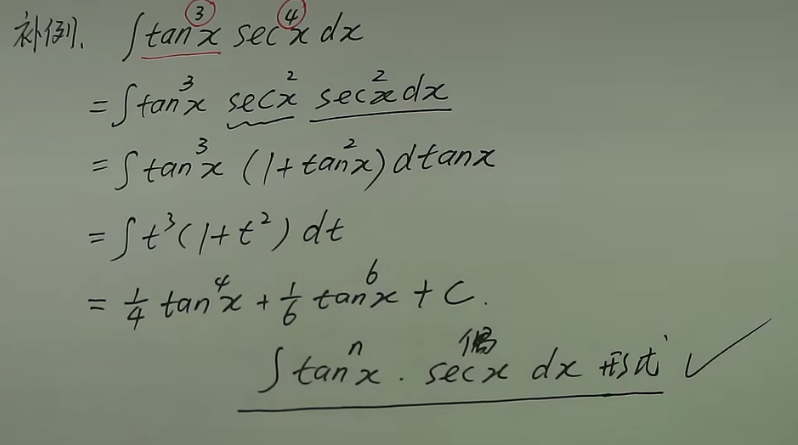 补例. ∫tan³x sec⁴x dx
= ∫tan³x sec²x sec²x dx
= ∫tan³x (1+tan²x) dtanx
= ∫t³(1+t²) dt
= 1/4 tan⁴x + 1/6 tan⁶x + C.
∫tanⁿx · sec^偶x dx 形式 ✓